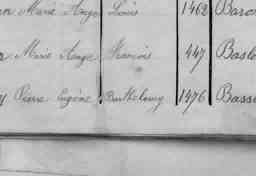 Marie Ange Louis 1462 Baro
Marie Ange François 447 Basl
Pierre Eugène Barthelemy 1476 Bass